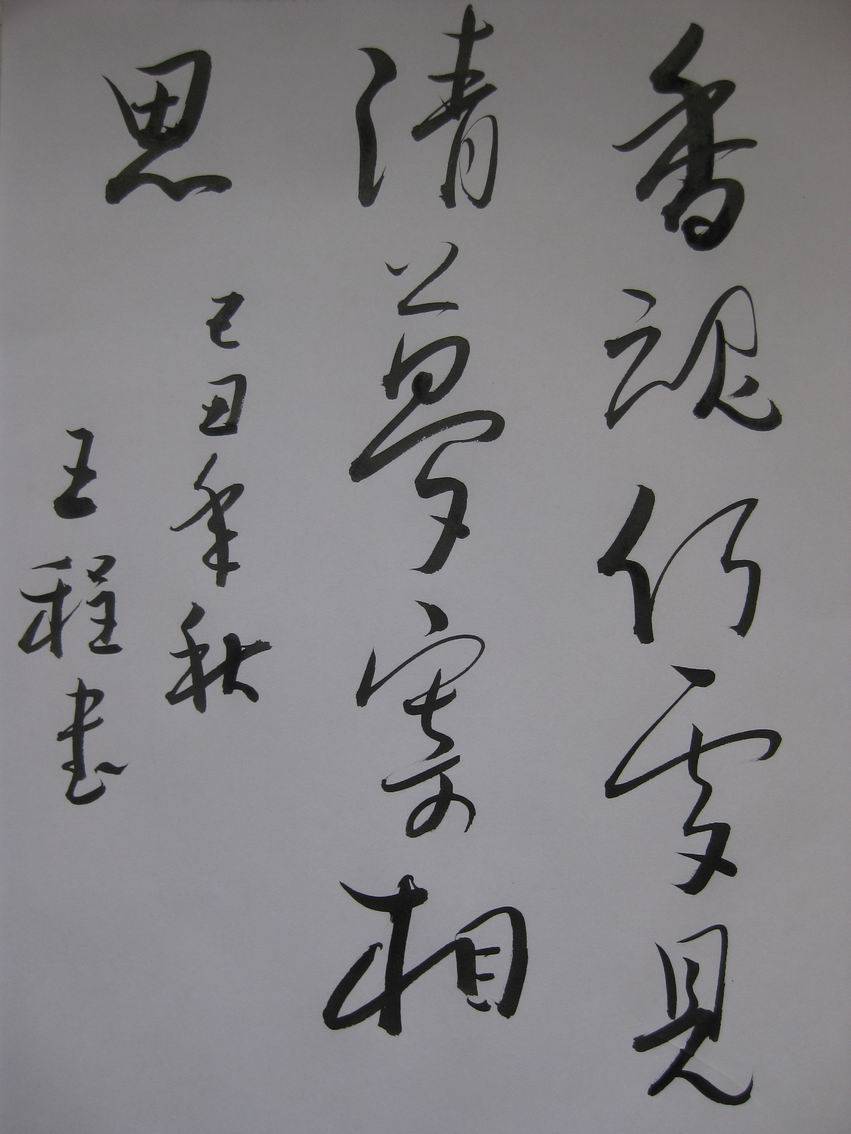 香魂何處見
清夢寄相
思
己丑年秋
王程書